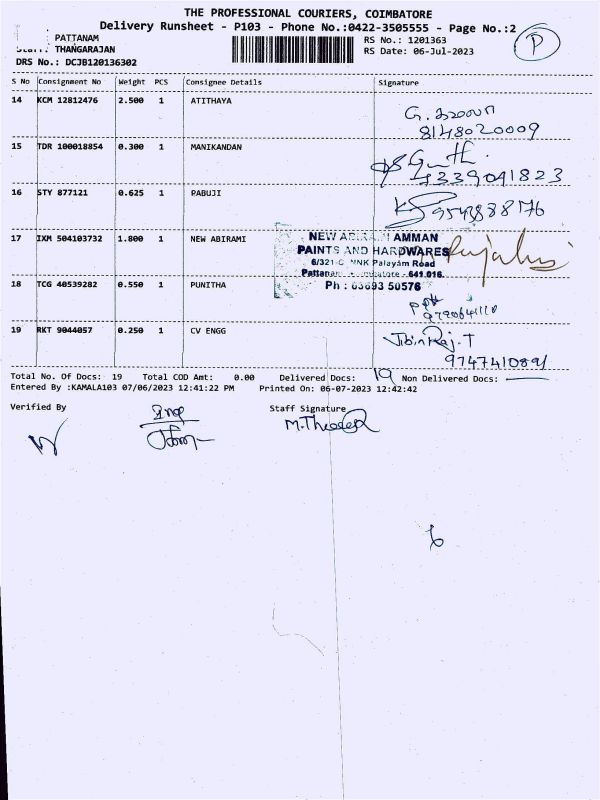 THE PROFESSIONAL COURIERS, COIMBATORE
Delivery Runsheet - P103 - Phone No.:0422-3505555 - Page No.:2
P
PATTANAM
RS No.: 1201363
THANGARAJAN
RS Date: 06-Jul-2023
DRS No.: DCJB120136302
S No Consignment No Weight PCS Consignee Details Signature
14 KCM 12812476 2.500 1 ATITHAYA
8148020009
15 TDR 100018854 0.300 1 MANIKANDAN
16 STY 877121 0.625 1 PABUJI
17 IXM 504103732 1.800 1 NEW ABIRAMI
NEW AMMAN
PAINTS AND HARDWARES
6/321-C Palayam Road
641.016.
Ph : 93 50576
18 TCG 40539282 0.550 1 PUNITHA
19 RKT 9044057 0.250 1 CV ENGG
JibinRaj.T
9747410891
Total No. Of Docs: 19 Total COD Amt: 0.00 Delivered Docs: 19 Non Delivered Docs:
Entered By :KAMALA103 07/06/2023 12:41:22 PM Printed On: 06-07-2023 12:42:42
Verified By Staff Signature